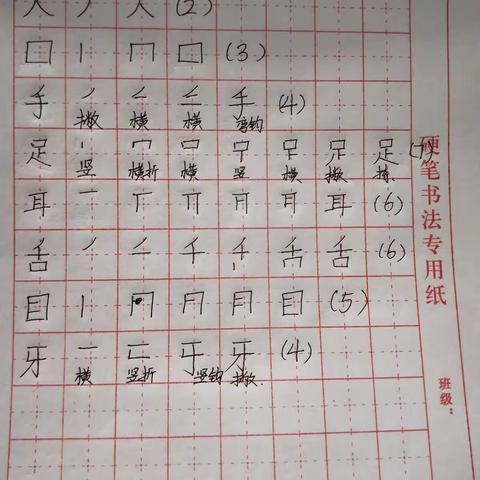 人 丿 人 (2)
口 丨 冂 口 (3)
手 (4)
撇 横 横 弯钩
足 (7)
竖 横折 横 竖 横 撇 捺
耳 一 丅 耳 (6)
舌 丿 二 千 舌 舌 (6)
目 丨 冂 月 目 (5)
牙 一 二 牙 (4)
横 竖折 竖钩 撇
硬笔书法专用纸
班级: